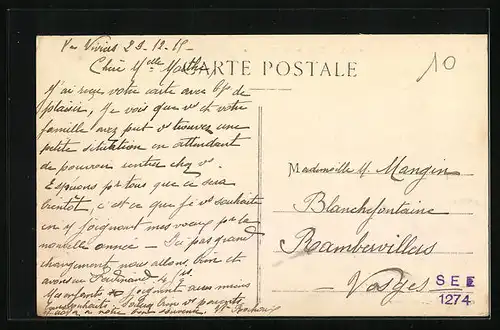 Viviers 29-12-15-
Chère Melle Marthe
CARTE POSTALE
10
J'ai reçu votre carte avec bp de
plaisir, Je vois que vs et votre
famille avez peut vs trouver une
petite situation en attendant
de pouvoir rentrer chez vs.
Espérons pr tous que ce sera
bientôt, c'est ce que je vs souhaite
en y joignant mes vœux pr la
nouvelle année - Ici pas grand
changement nous allons bien et
avons eu Ferdinand 4
Mes enfants se joignent aux miens
souhaits, bien vs parents
à notre bon souvenir.
Mademoiselle M. Mangin
Blanchefontaine
Rambervillers
Vosges
SEE
1274